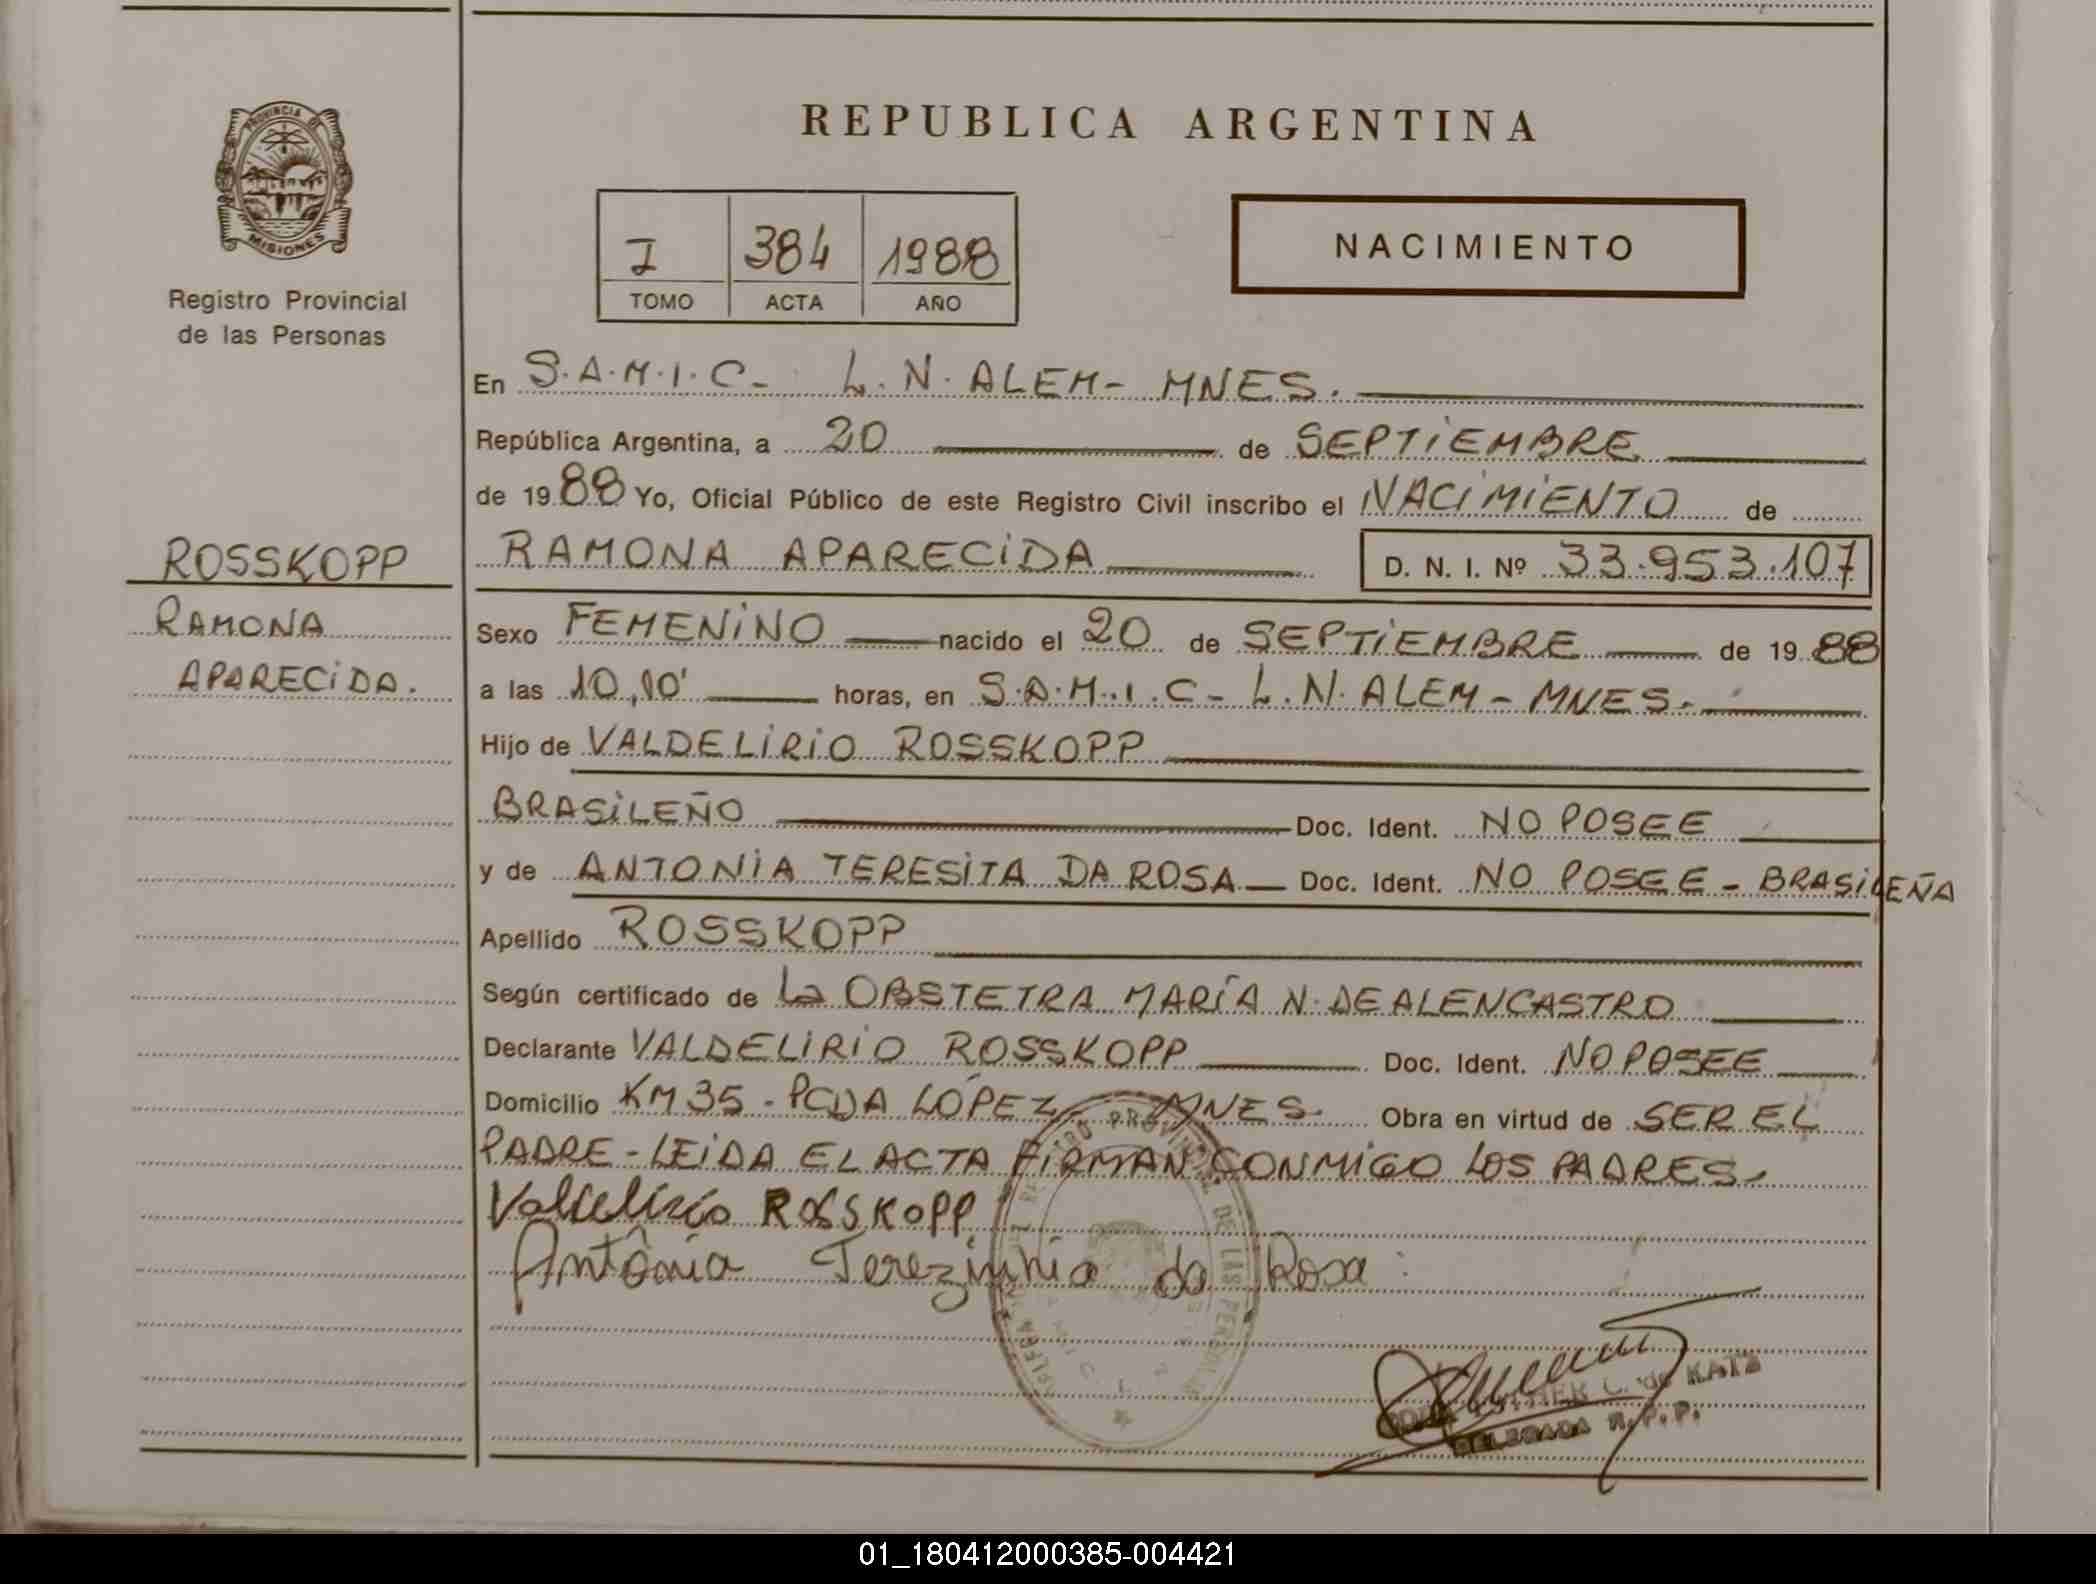 PROVINCIA DE
MISIONES
Registro Provincial
de las Personas
ROSSKOPP
RAMONA
APARECIDA.
REPUBLICA ARGENTINA
I 384 1988
TOMO ACTA AÑO
NACIMIENTO
En S.A.M.I.C- L.N.ALEM- MNES.
República Argentina, a 20 de SEPTIEMBRE
de 1988 Yo, Oficial Público de este Registro Civil inscribo el NACIMIENTO de
RAMONA APARECIDA D. N. I. Nº 33.953.107
Sexo FEMENINO nacido el 20 de SEPTIEMBRE de 1988
a las 10,10' horas, en S.A.M.I.C- L.N.ALEM- MNES.
Hijo de VALDELIRIO ROSSKOPP
BRASILEÑO Doc. Ident. NO POSEE
y de ANTONIA TERESITA DA ROSA Doc. Ident. NO POSEE - BRASILEÑA
Apellido ROSSKOPP
Según certificado de La OBSTETRA MARÍA N. DE ALENCASTRO
Declarante VALDELIRIO ROSSKOPP Doc. Ident. NO POSEE
Domicilio KM 35 - PCDA LÓPEZ - MNES. Obra en virtud de SER EL
PADRE - LEIDA EL ACTA FIRMAN CONMIGO LOS PADRES.
Valdelirio ROSSKOPP
Antônia Terezinhia da Rosa
REGISTRO PROVINCIAL DE LAS PERSONAS
C. de KATZ
DELEGADA R.P.P.
01_180412000385-004421